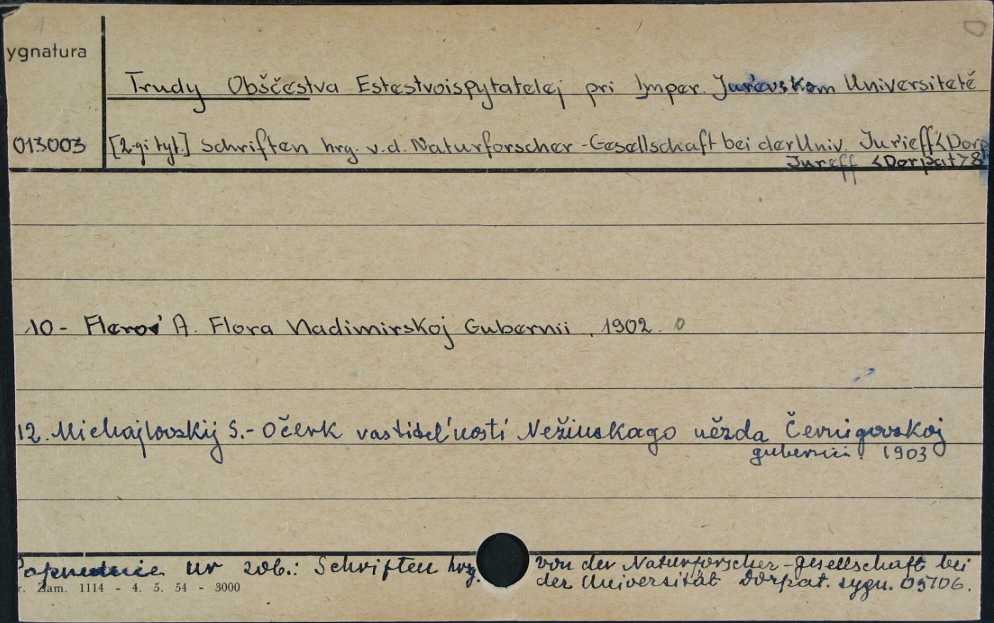 ygnatura
Trudy Obščestva Estestvoispytatelej pri Imper. Jur'evskom Universitetě
013003 [2-gi tyt.] Schriften hrg. v.d. Naturforscher-Gesellschaft bei der Univ. Jur'eff <Dorp
Jureff <Dorpat>
10 - Flerov A. Flora Vladimirskoj Gubernii . 1902.
12. Michajlovskij S. - Očerk rastitel'nosti Nežinskago uězda Černigovskoj
gubernii. 1903
Poprzednie nr zob.: Schriften hrg. von der Naturforscher-Gesellschaft bei
der Universität Dorpat. sygn. 05706.
r. Zam. 1114 - 4. 5. 54 - 3000